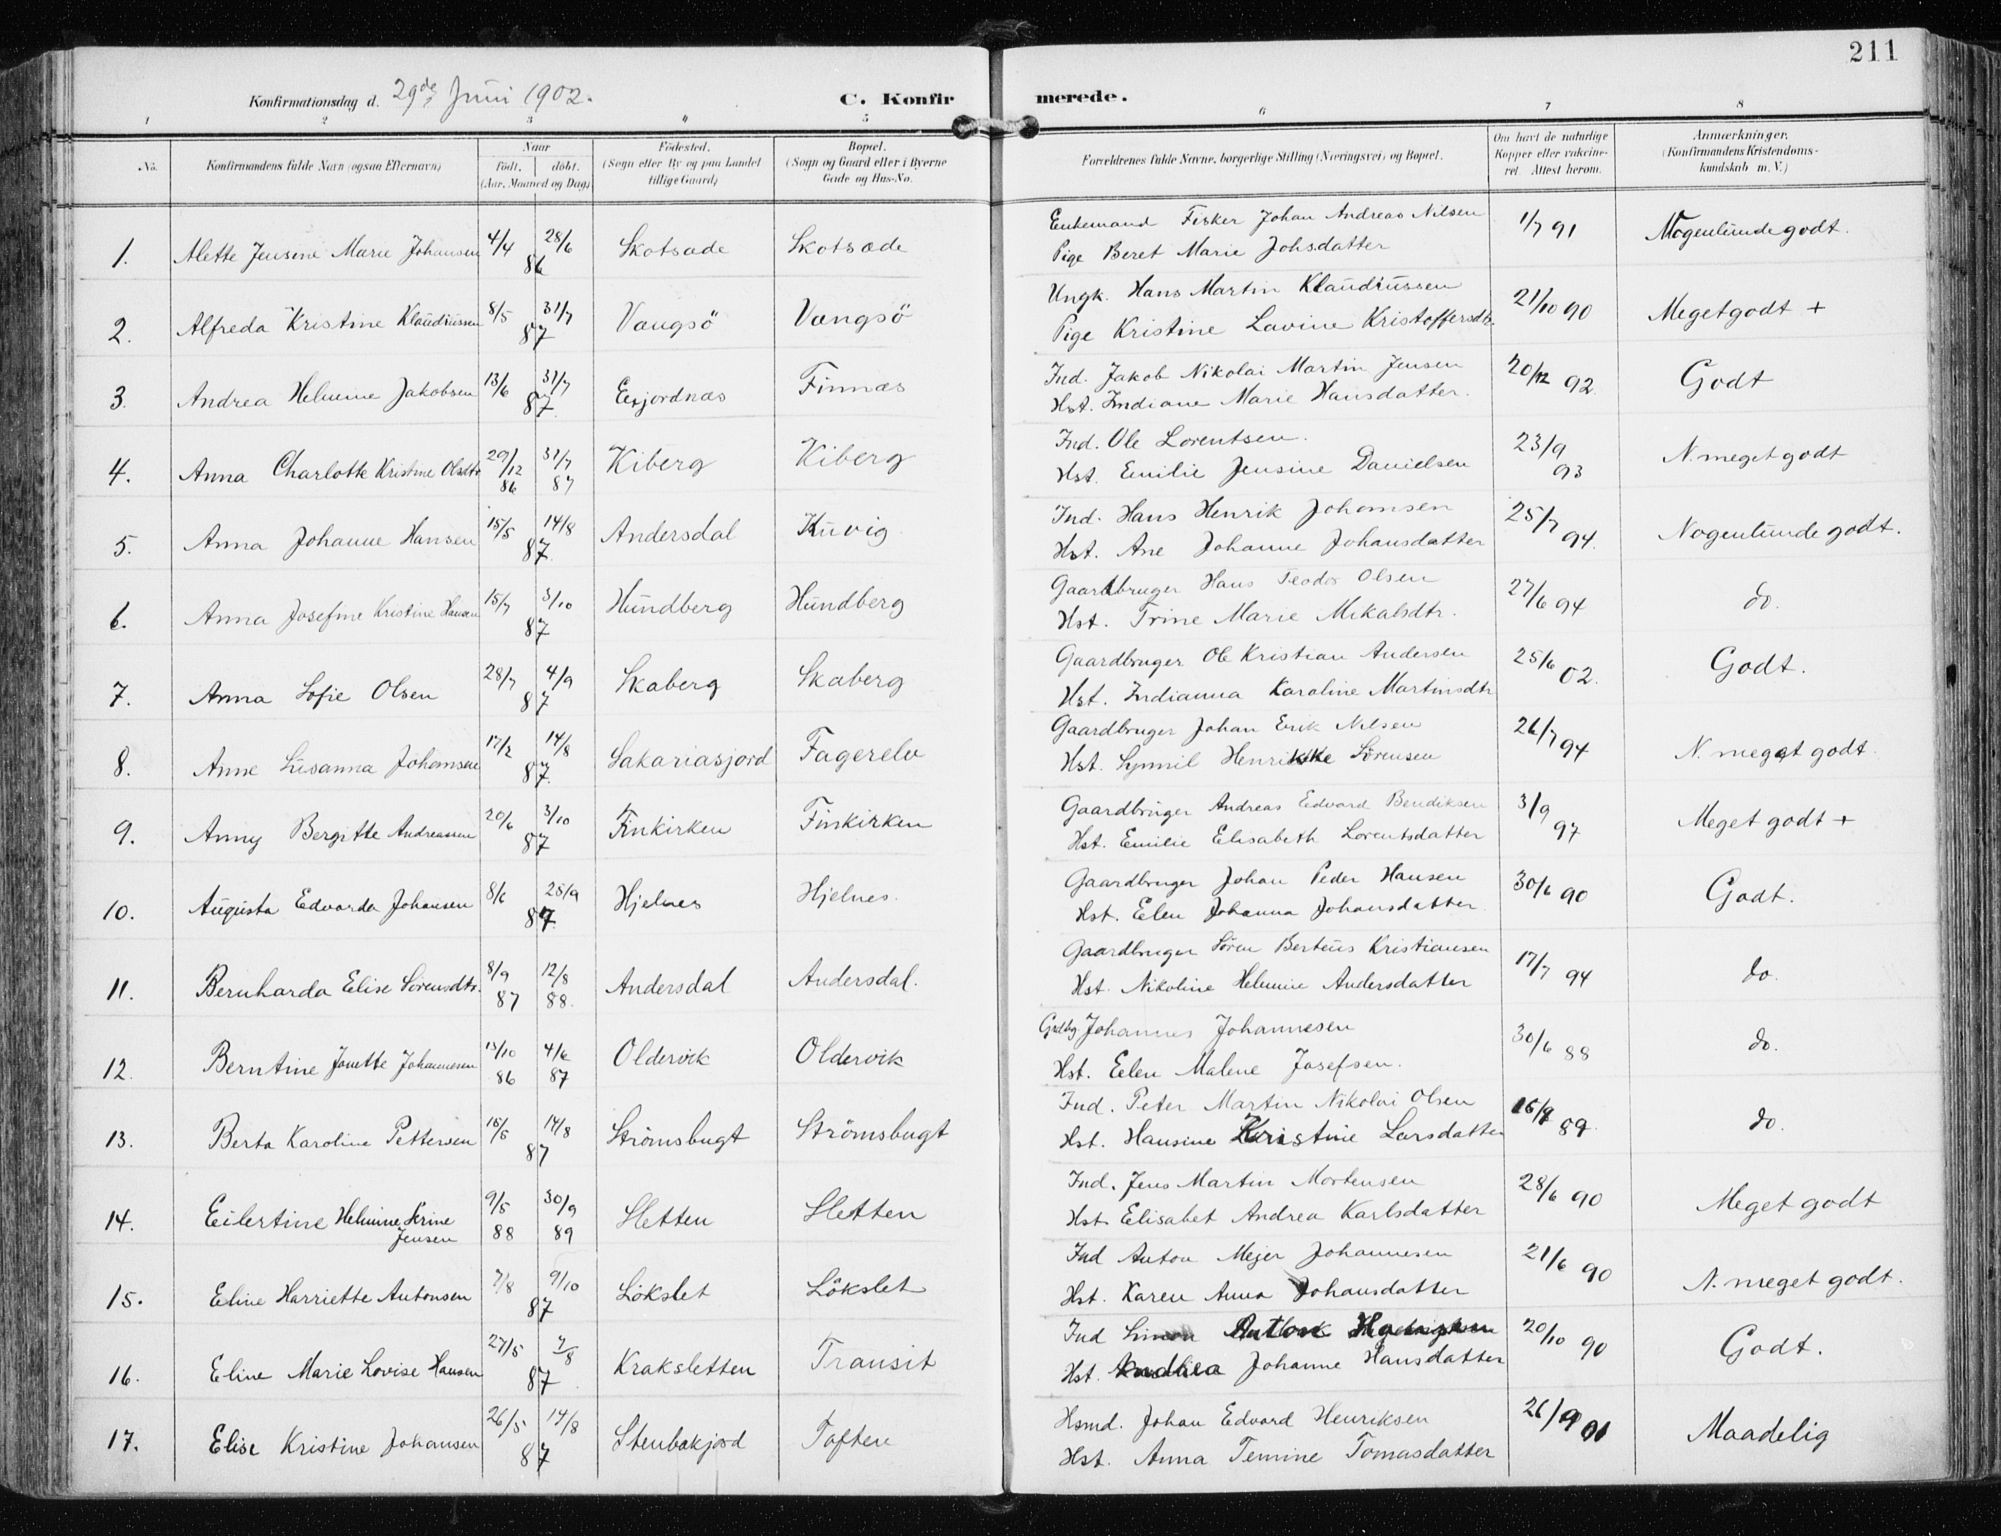 211
Konfirmationsdag d. 29de Juni 1902.
C. Konfirmerede.
1 2 3 4 5 6 7 8
No. Konfirmandens fulde Navn (ogsaa Efternavn) Naar født, døbt. (Aar, Maaned og Dag) Fødested. (Sogn eller By og paa Landet tillige Gaard) Bopæl. (Sogn og Gaard eller i Byerne Gade og Hus-No. Forældrenes fulde Navne, borgerlige Stilling (Næringsvei) og Bopæl. Om havt de naturlige Kopper eller vakcineret. Attest herom. Anmærkninger. (Konfirmandens Kristendomskundskab m. V.)
1. Alette Jensene Marie Johansen 4/4 28/6 86 Skotsæde Skotsæde Enkemand Fisker Johan Andreas Nilsen 1/7 91 Nogenlunde godt.
Pige Beret Marie Johsdatter
2. Alfreda Kristine Klaudiussen 8/5 31/7 87 Vengsö Vengsö Ungk. Hans Martin Klaudiussen 21/10 90 Meget godt +
Pige Kristine Lavine Kristoffersdtr.
3. Andrea Helmine Jakobsen 13/6 31/7 87 Exjordnæs Finnæs Ind. Jakob Nikolai Martin Jensen 20/12 92 Godt
Hst. Indiane Marie Hansdatter.
4. Anna Charlotte Kristine Olsdtr 29/12 86 31/7 87 Kiberg Kiberg Ind. Ole Lorentsen. 23/9 93 N. meget godt
Hst. Emilie Jensine Danielsen
5. Anna Johanne Hansen 15/5 14/8 87 Andersdal Kuvig Ind. Hans Henrik Johansen 25/7 94. Nogenlunde godt.
Hst. Ane Johanne Johansdatter
6. Anna Josefine Kristine Hansen 15/7 3/10 87 Hundberg Hundberg Gaardbruger Hans Teodor Olsen 27/6 94 do.
Hst. Trine Marie Mikalsdtr.
7. Anna Sofie Olsen 28/7 4/9 87 Skaberg Skaberg Gaardbruger Ole Kristian Andersen 25/6 02. Godt.
Hst. Indianna Karoline Martinsdtr
8. Anne Susanna Johansen 17/2 14/8 87. Sakariasjord Fagerelv Gaardbruger Johan Erik Nilsen 26/7 94 N. meget godt.
Hst. Synnil Henrikke Sörensen
9. Anny Bergitte Andreassen 20/6 3/10 87 Finkirken Finkirken Gaardbruger Andreas Edvard Bendiksen 3/9 97 Meget godt +
Hst. Emilie Elisabeth Lorentsdatter
10. Augusta Edvarda Johansen 8/6 25/9 87. Hjelnes Hjelnes. Gaardbruger Johan Peder Hansen 30/6 90 Godt.
Hst. Elen Johanna Johansdatter
11. Bernharda Elise Sörensdtr. 8/9 87 12/8 88. Andersdal Andersdal. Gaardbruger Sören Berteus Kristiansen 17/7 94 do.
Hst. Nikoline Helmine Andersdatter
12. Berntine Jonette Johannesen 13/10 86 4/6 87 Oldervik Oldervik Grdbg Johannes Johannesen 30/6 88 do.
Hst. Elen Malene Josefsen.
13. Berta Karoline Pettersen 15/5 14/8 87 Strömsbugt Strömsbugt Ind. Peter Martin Nikolai Olsen 89. do.
Hst. Hansine Kristine Larsdatter
14. Eilertine Helmine Serine Jensen 9/5 88 30/9 89 Sletten Sletten Ind. Jens Martin Mortensen 28/6 90 Meget godt
Hst. Elisabet Andrea Karlsdatter
15. Eline Harriette Antonsen 7/8 9/10 87 Lökslet Lökslet Ind Anton Mejer Johannesen 21/6 90 N. meget godt.
Hst. Karen Anna Johansdatter
16. Eline Marie Lovise Hansen 27/5 7/8 87. Kraksletten Transit Ind Simon Anton 20/10 90 Godt.
Hst. Johanne Hansdatter
17. Elise Kristine Johansen 26/5 14/8 87 Stenbakjord Toften Hsmd. Johan Edvard Henriksen 26/9 01 Maadelig
Hst. Anna Temine Tomasdatter